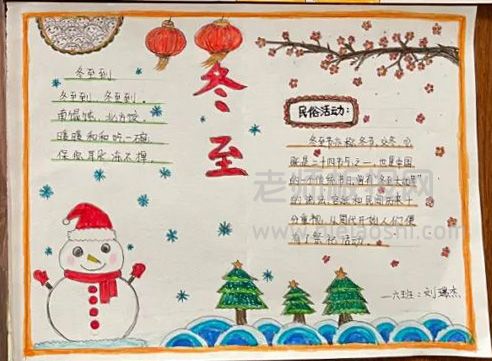 冬至
冬至到
冬至到,冬至到。
南馄饨,北方饺
暖暖和和吃一碗
保你耳朵冻不掉
民俗活动:
冬至节亦称冬节、交冬。它
既是二十四节气之一,也是中国
的一个传统节日,曾有"冬至大如年"
的说法,宫廷和民间历来十
分重视,从周代开始人们便
有了祭祀活动。
一六班:刘瑾杰
老师板报网
www.qielaoshi.com